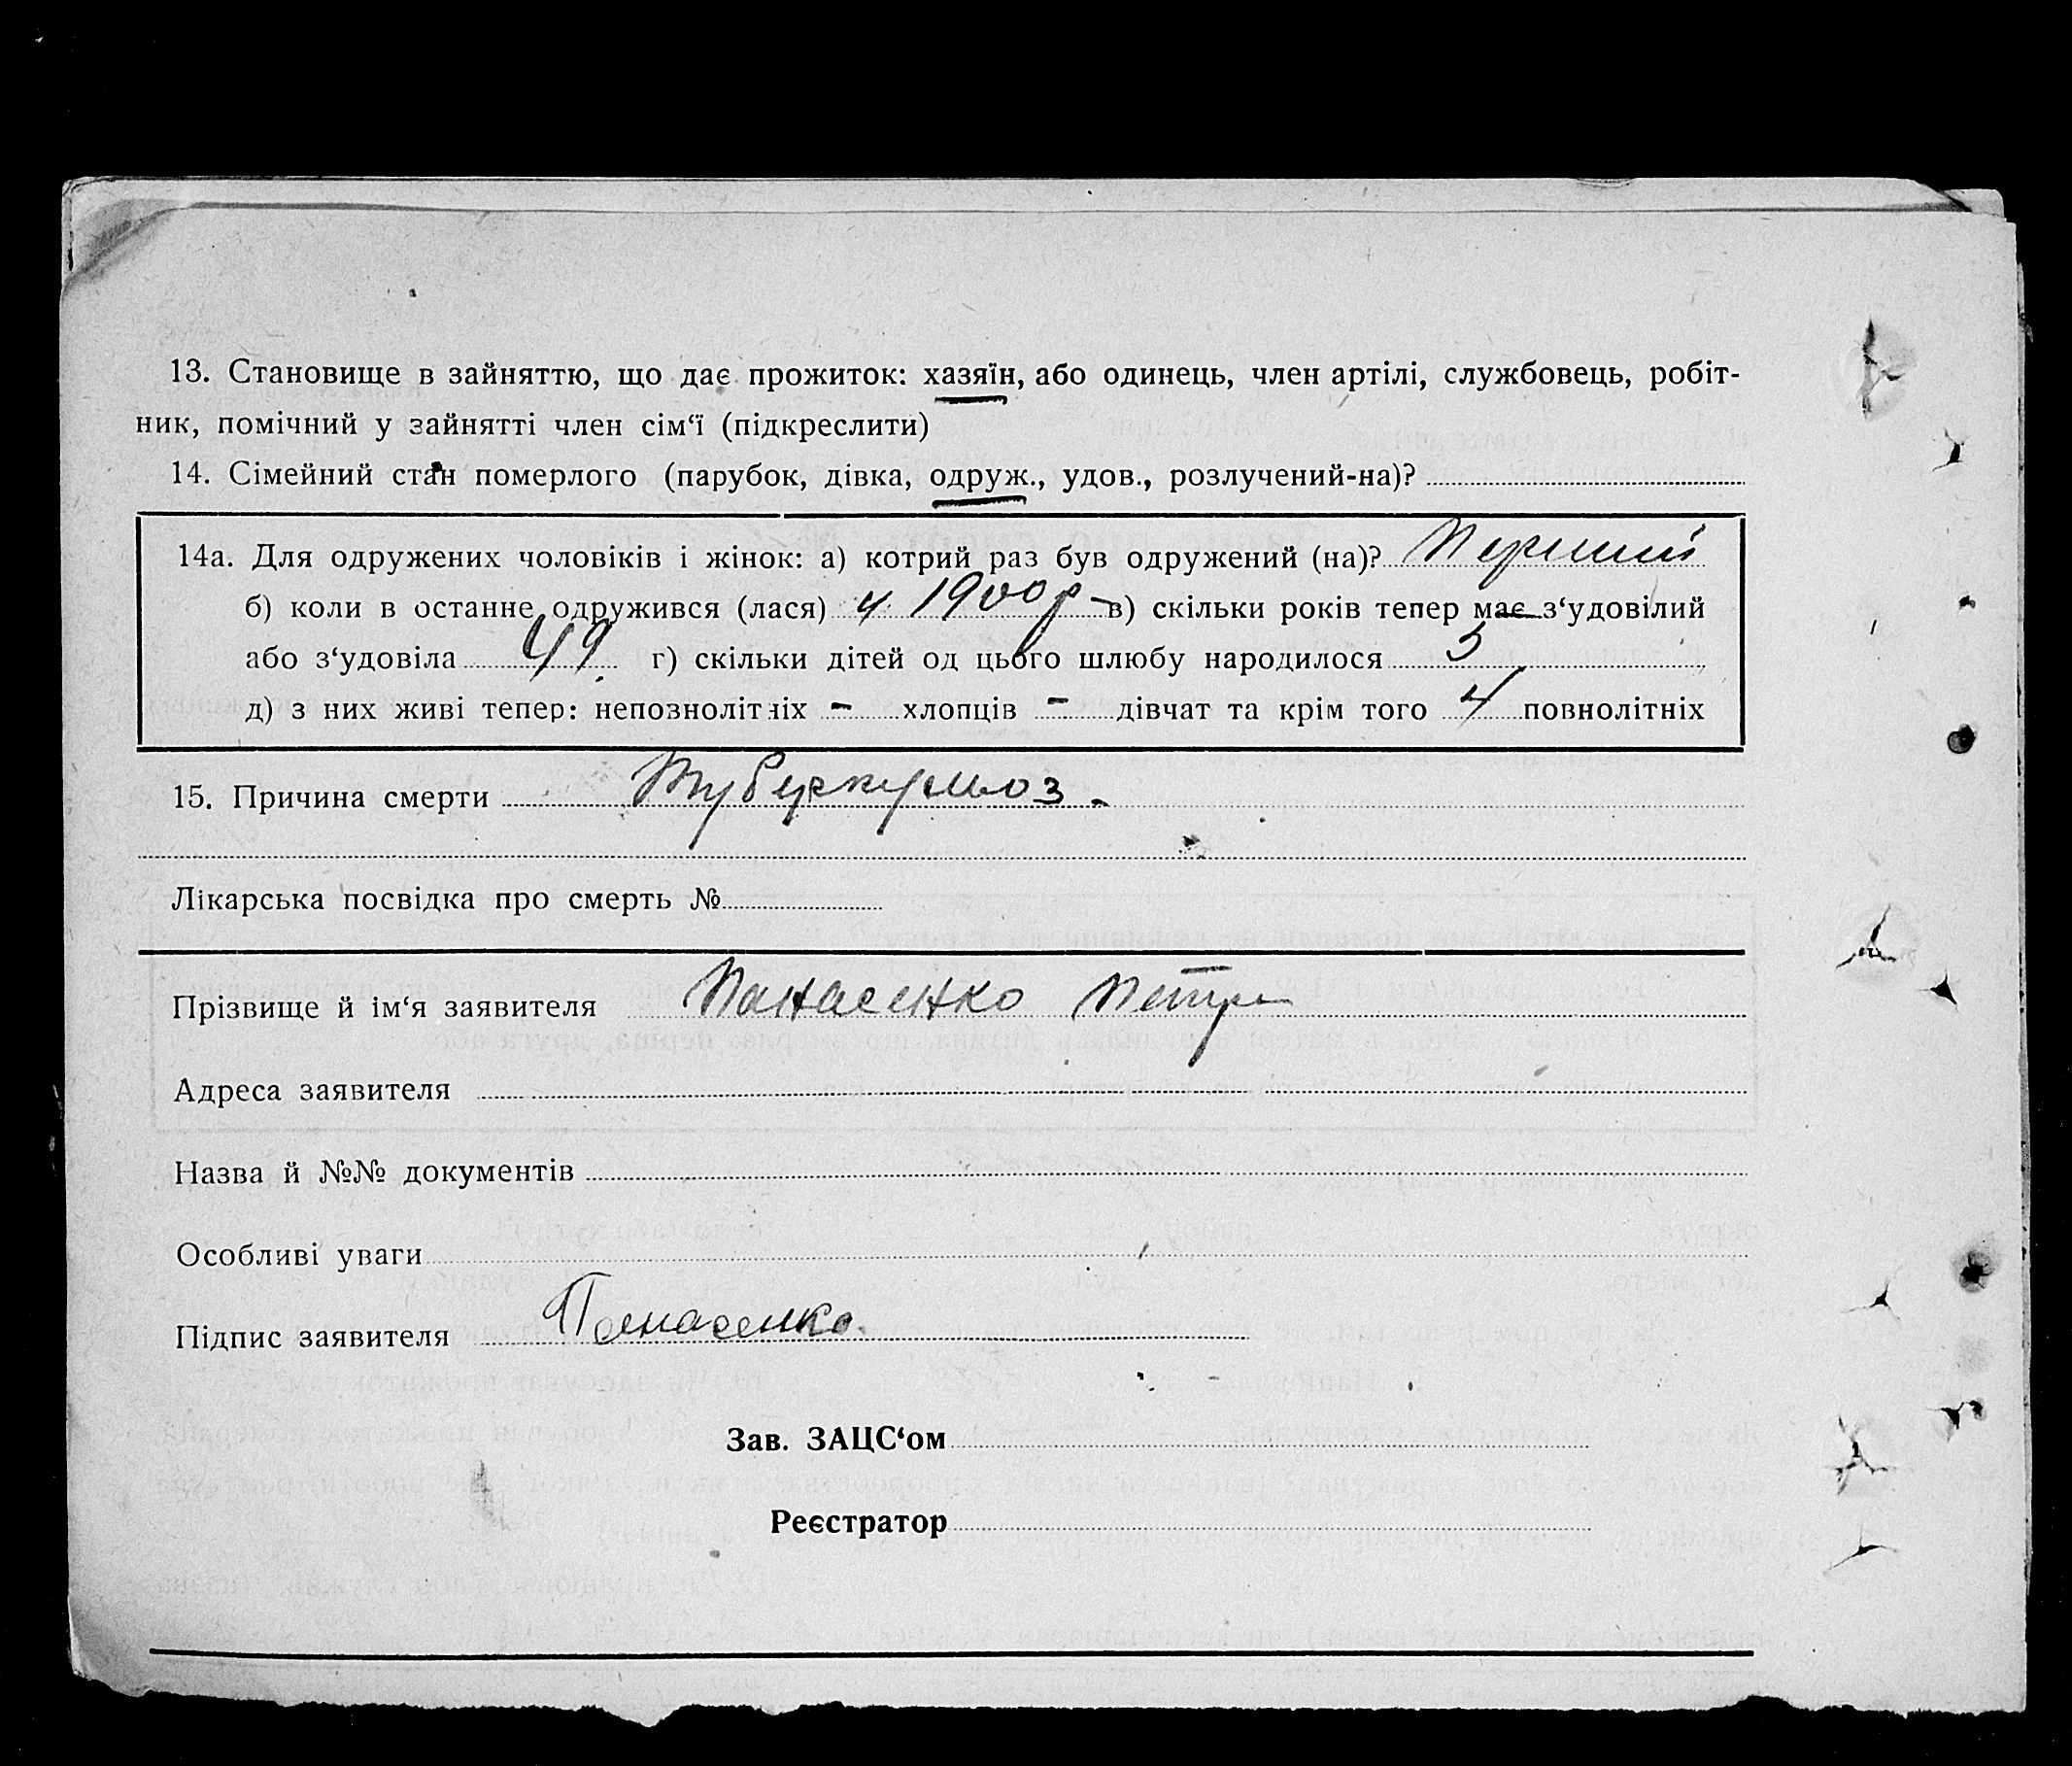 13. Становище в зайняттю, що дає прожиток: хазяїн, або одинець, член артілі, службовець, робіт-
ник, помічний у зайнятті член сім‘ї (підкреслити)
14. Сімейний стан померлого (парубок, дівка, одруж., удов., розлучений-на)?
14а. Для одружених чоловіків і жінок: а) котрий раз був одружений (на)? Перший
б) коли в останне одружився (лася) у 1900 р – в) скільки років тепер має з‘удовілий
або з‘удовіла 49. г) скільки дітей од цього шлюбу народилося 5
д) з них живі тепер: непозполітніх – хлопців – дівчат та крім того 4 повнолітніх
15. Причина смерти Туберкульоз.
Лікарська посвідка про смерть №
Прізвище й ім‘я заявителя Панасенко Петро
Адреса заявителя
Назва й №№ документів
Особливі уваги
Підпис заявителя Панасенко.
Зав. ЗАЦС‘ом
Реєстратор